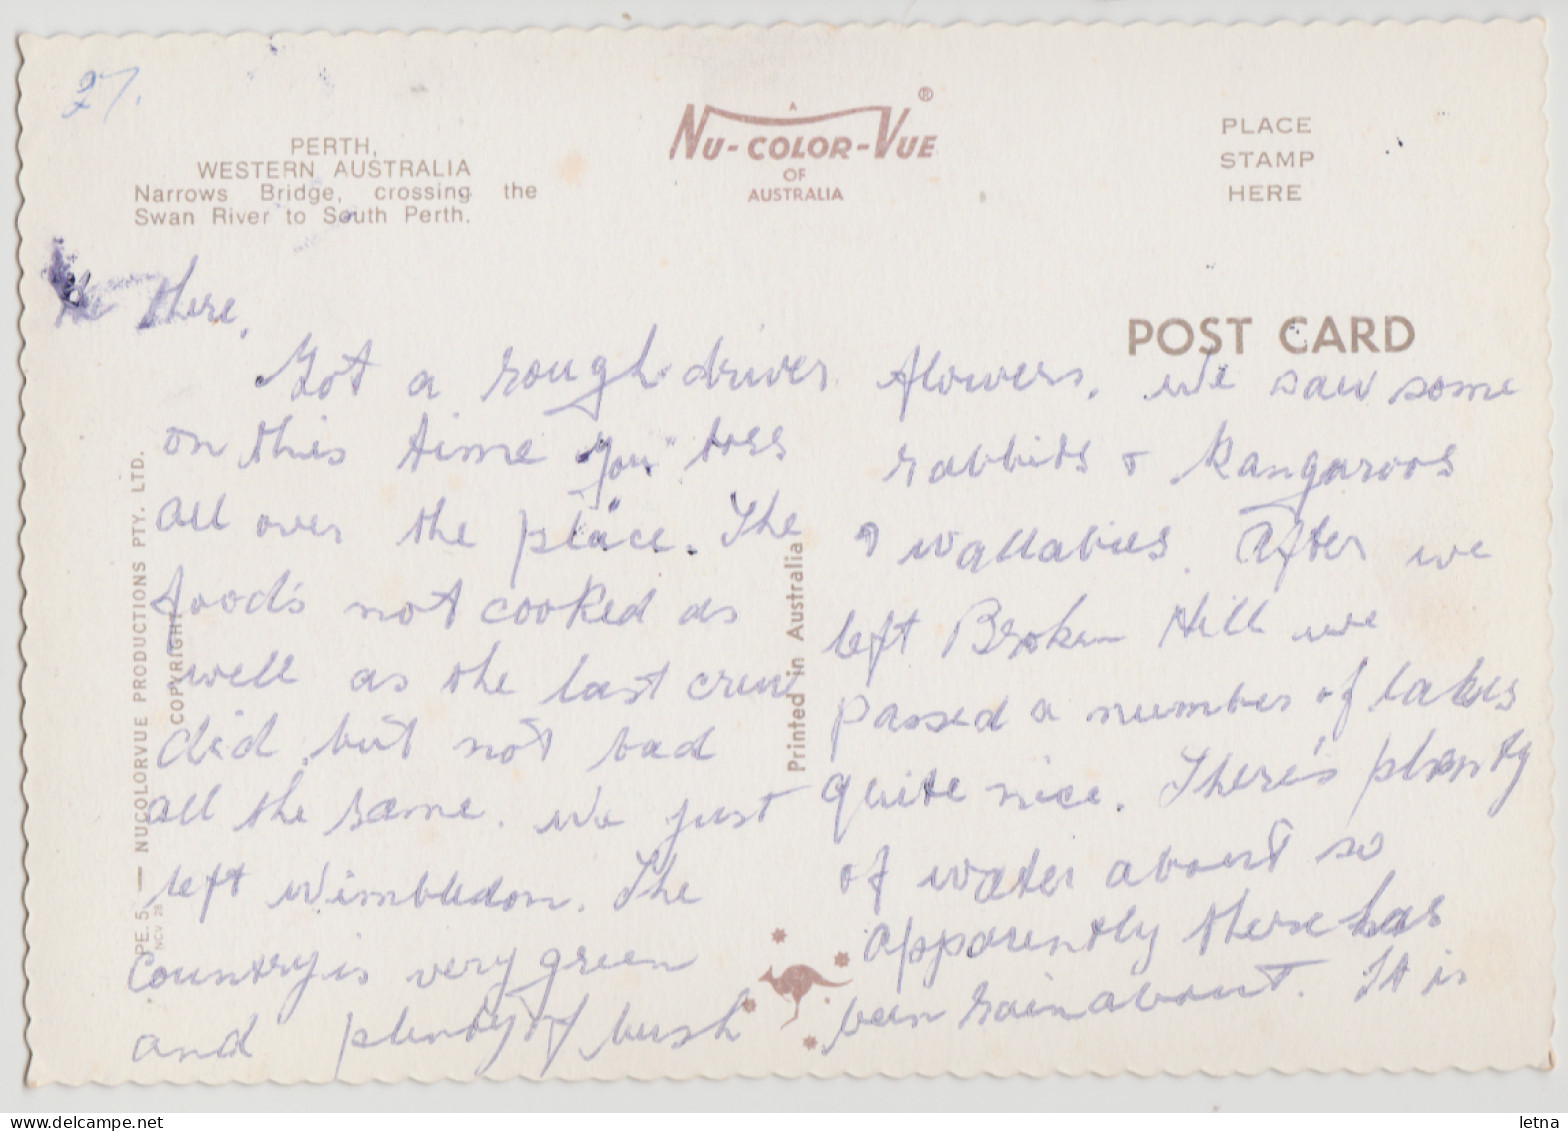 27.
PERTH,
WESTERN AUSTRALIA
Narrows Bridge, crossing the
Swan River to South Perth.
A
NU-COLOR-VUE ®
OF
AUSTRALIA
PLACE
STAMP
HERE
POST CARD
Hi there,
Got a rough driver
on this time "you" toss
all over the place. The
food's not cooked as
well as the last crew
did, but not bad
all the same. We just
left Wimbledon. The
Country is very green
and plenty of bush
flowers. We saw some
rabbits & Kangaroos
& Wallabies. After we
left Broken Hill we
passed a number of lakes
quite nice. There's plenty
of water about so
apparently there has
been rain about. It is
PE. 5 — NUCOLORVUE PRODUCTIONS PTY. LTD.
NCV 28
COPYRIGHT
Printed in Australia
www.delcampe.net
letna